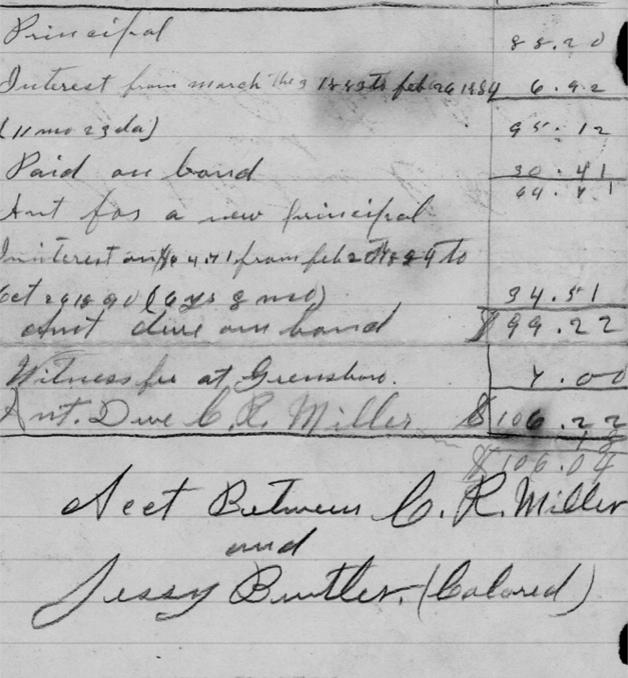 Principal 88.20
Interest from march the 3 1883 to feb 26 1884 6.92
(11 mo 23 da) 95.12
Paid on bond 30.41
64.71
Amt for a new principal
Initerest on $64.71 from feb 26 1884 to
Oct 26 1890 (6 ys 8 mo) 34.51
Amt due on bond $99.22
Witness fee at Greensboro. 7.00
Amt. Due C. R. Miller $106.22
18
$106.04
Acct Between C. R. Miller
and
Jessy Buttler. (Colored)